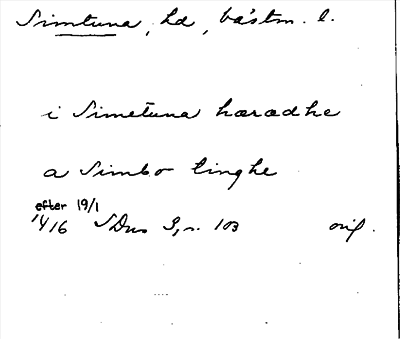 Simtuna, hd, båstm. l.
i Simetuna hæradhe
a Simbo tinghe
efter 19/1
1416 SDns 3, s. 103 orig.